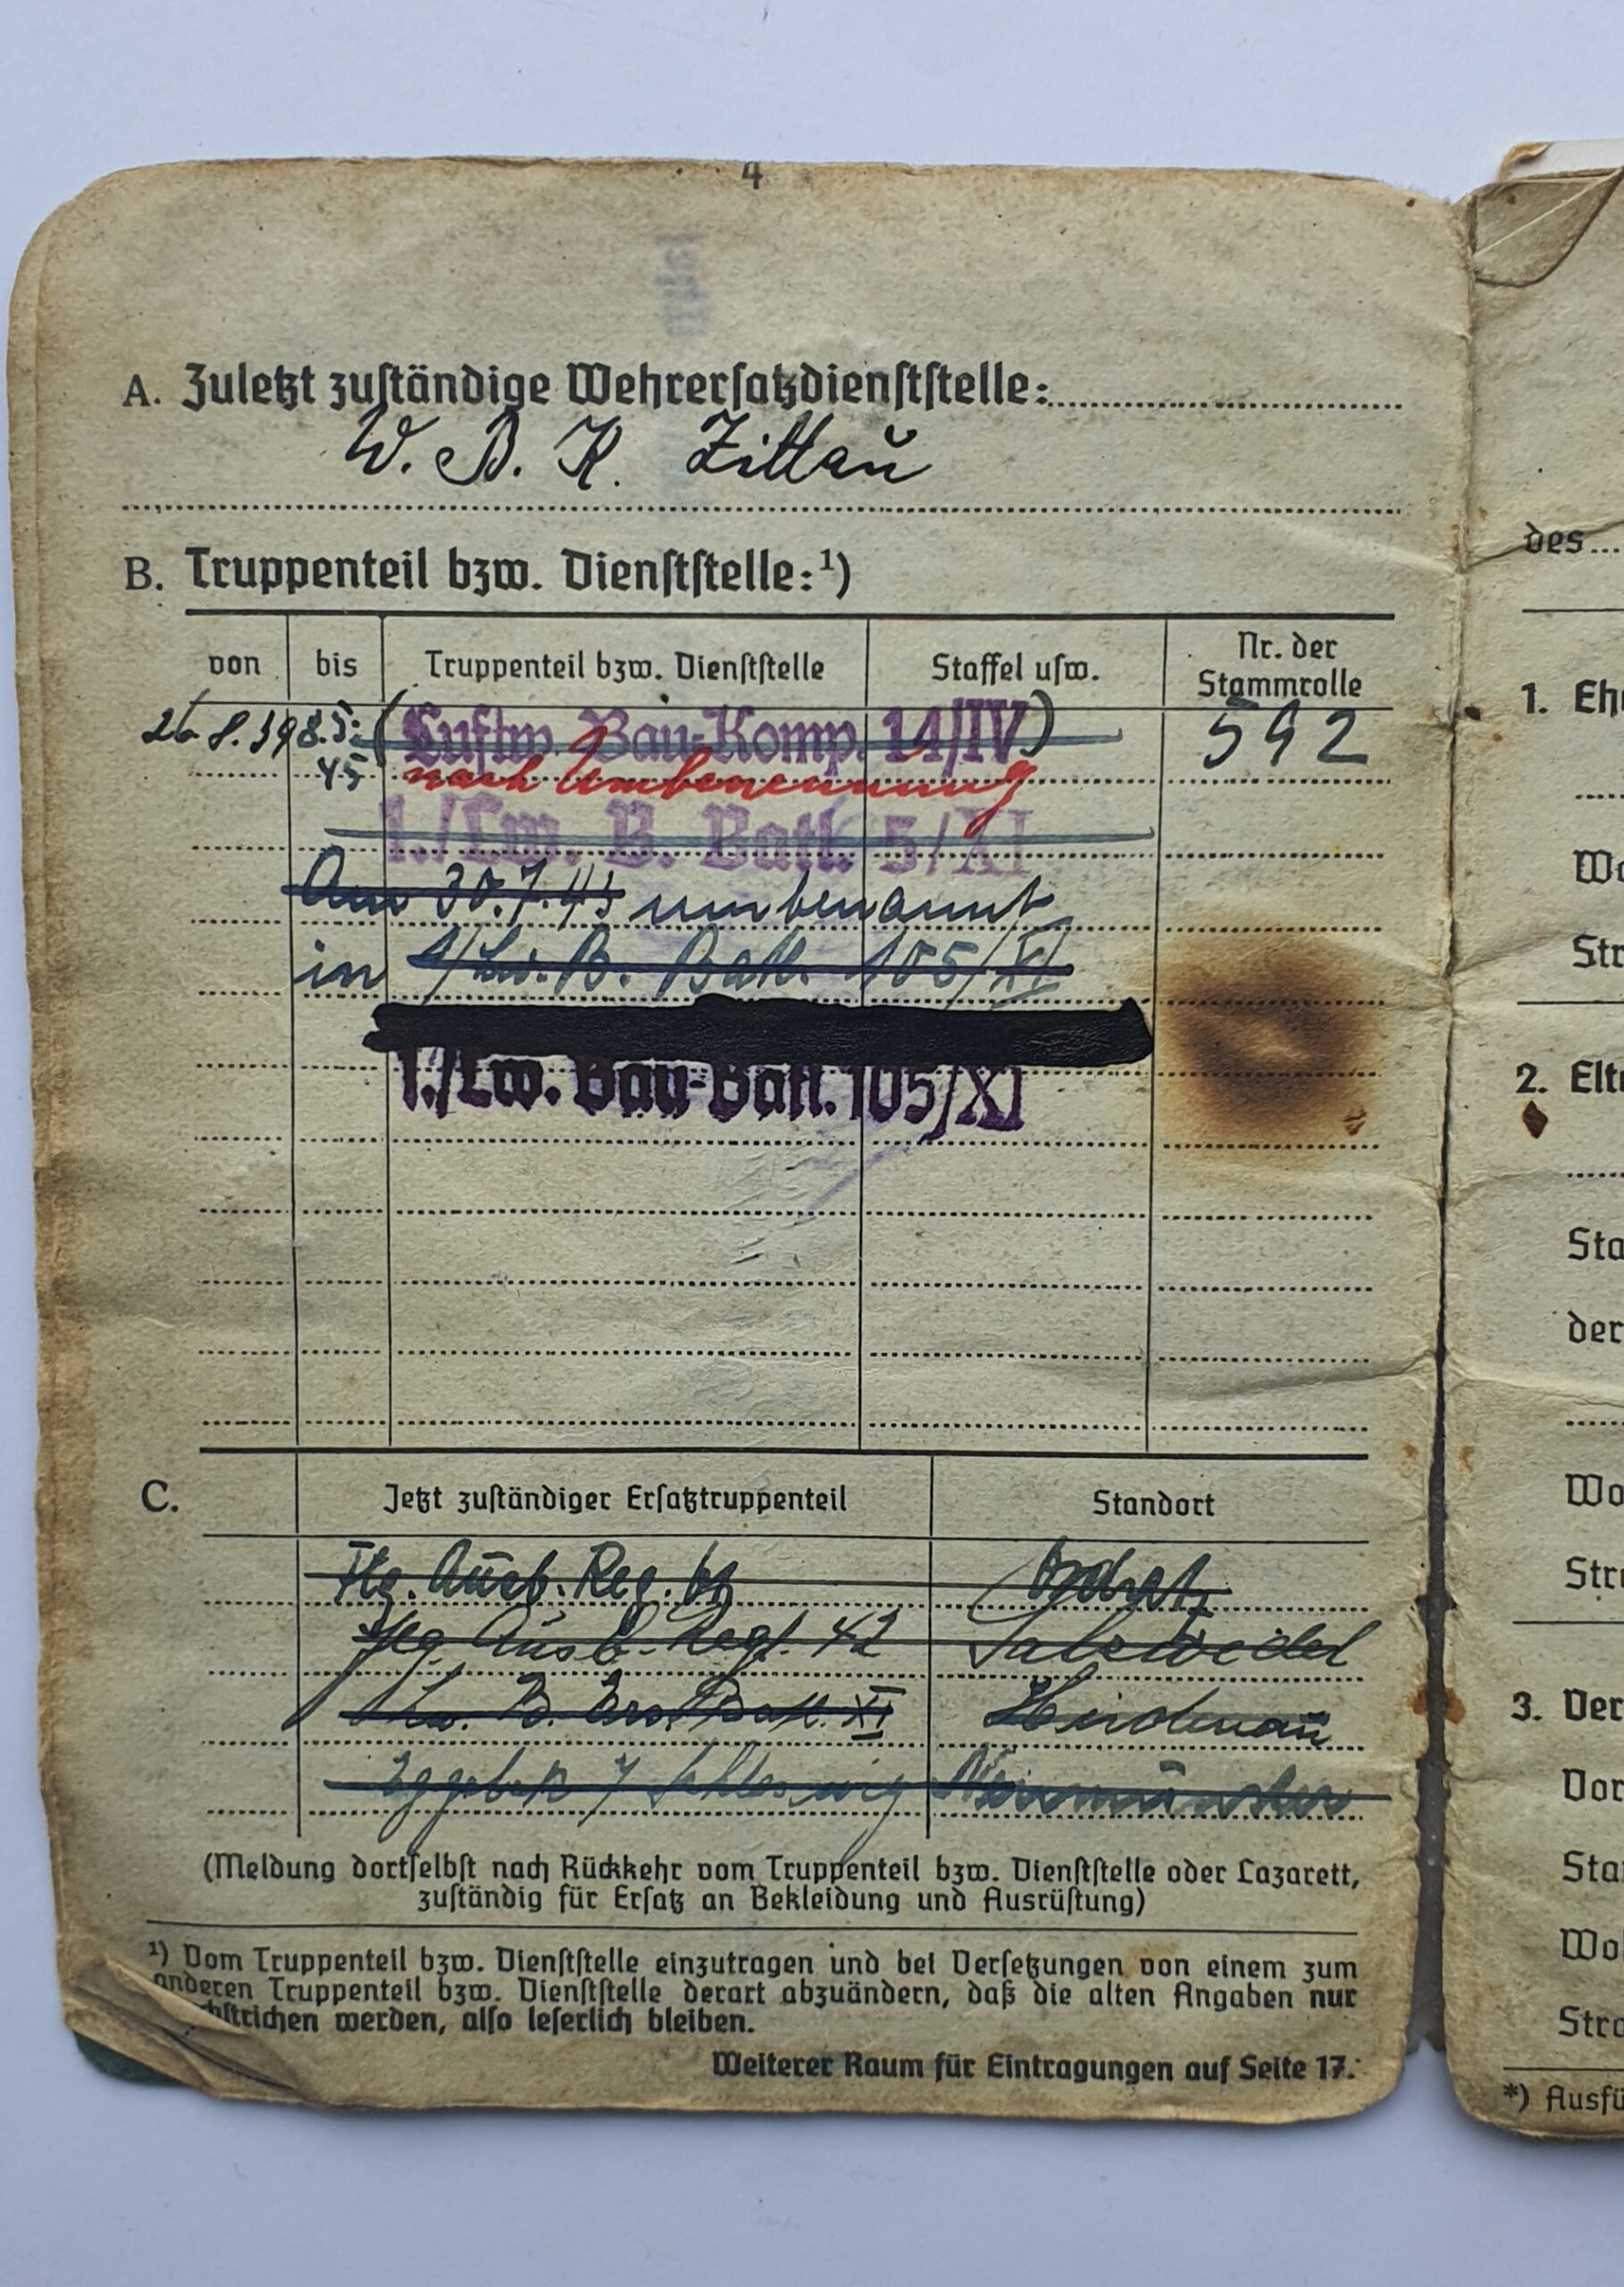 4
A. Zuletzt zuständige Wehrersatzdienststelle:
W. B. K. Zittau
B. Truppenteil bzw. Dienststelle:¹)
von bis Truppenteil bzw. Dienststelle Staffel usw. Nr. der Stammrolle
26.8.39 8.5. (Luftw. Bau-Komp. 14/IV) 592
45 nach Umbenennung
1./Lw. B. Batl. 5/XI
Am 30.7.43 umbenannt
in 1/Lw. B. Batl. 105/XI
1./Lw. Bau-Batl. 105/XI
C. Jetzt zuständiger Ersatztruppenteil Standort
Flg. Ausb. Reg.
Flg. Ausb. Regt. 42 Salzwedel
Lw. B. Ers. Batl. XI Heidenau
Eggebek / Schleswig Neumünster
(Meldung dortselbst nach Rückkehr vom Truppenteil bzw. Dienststelle oder Lazarett,
zuständig für Ersatz an Bekleidung und Ausrüstung)
¹) Vom Truppenteil bzw. Dienststelle einzutragen und bei Versetzungen von einem zum
anderen Truppenteil bzw. Dienststelle derart abzuändern, daß die alten Angaben nur
werden, also leserlich bleiben.
Weiterer Raum für Eintragungen auf Seite 17.
des
1.
2.
der
3.
*)